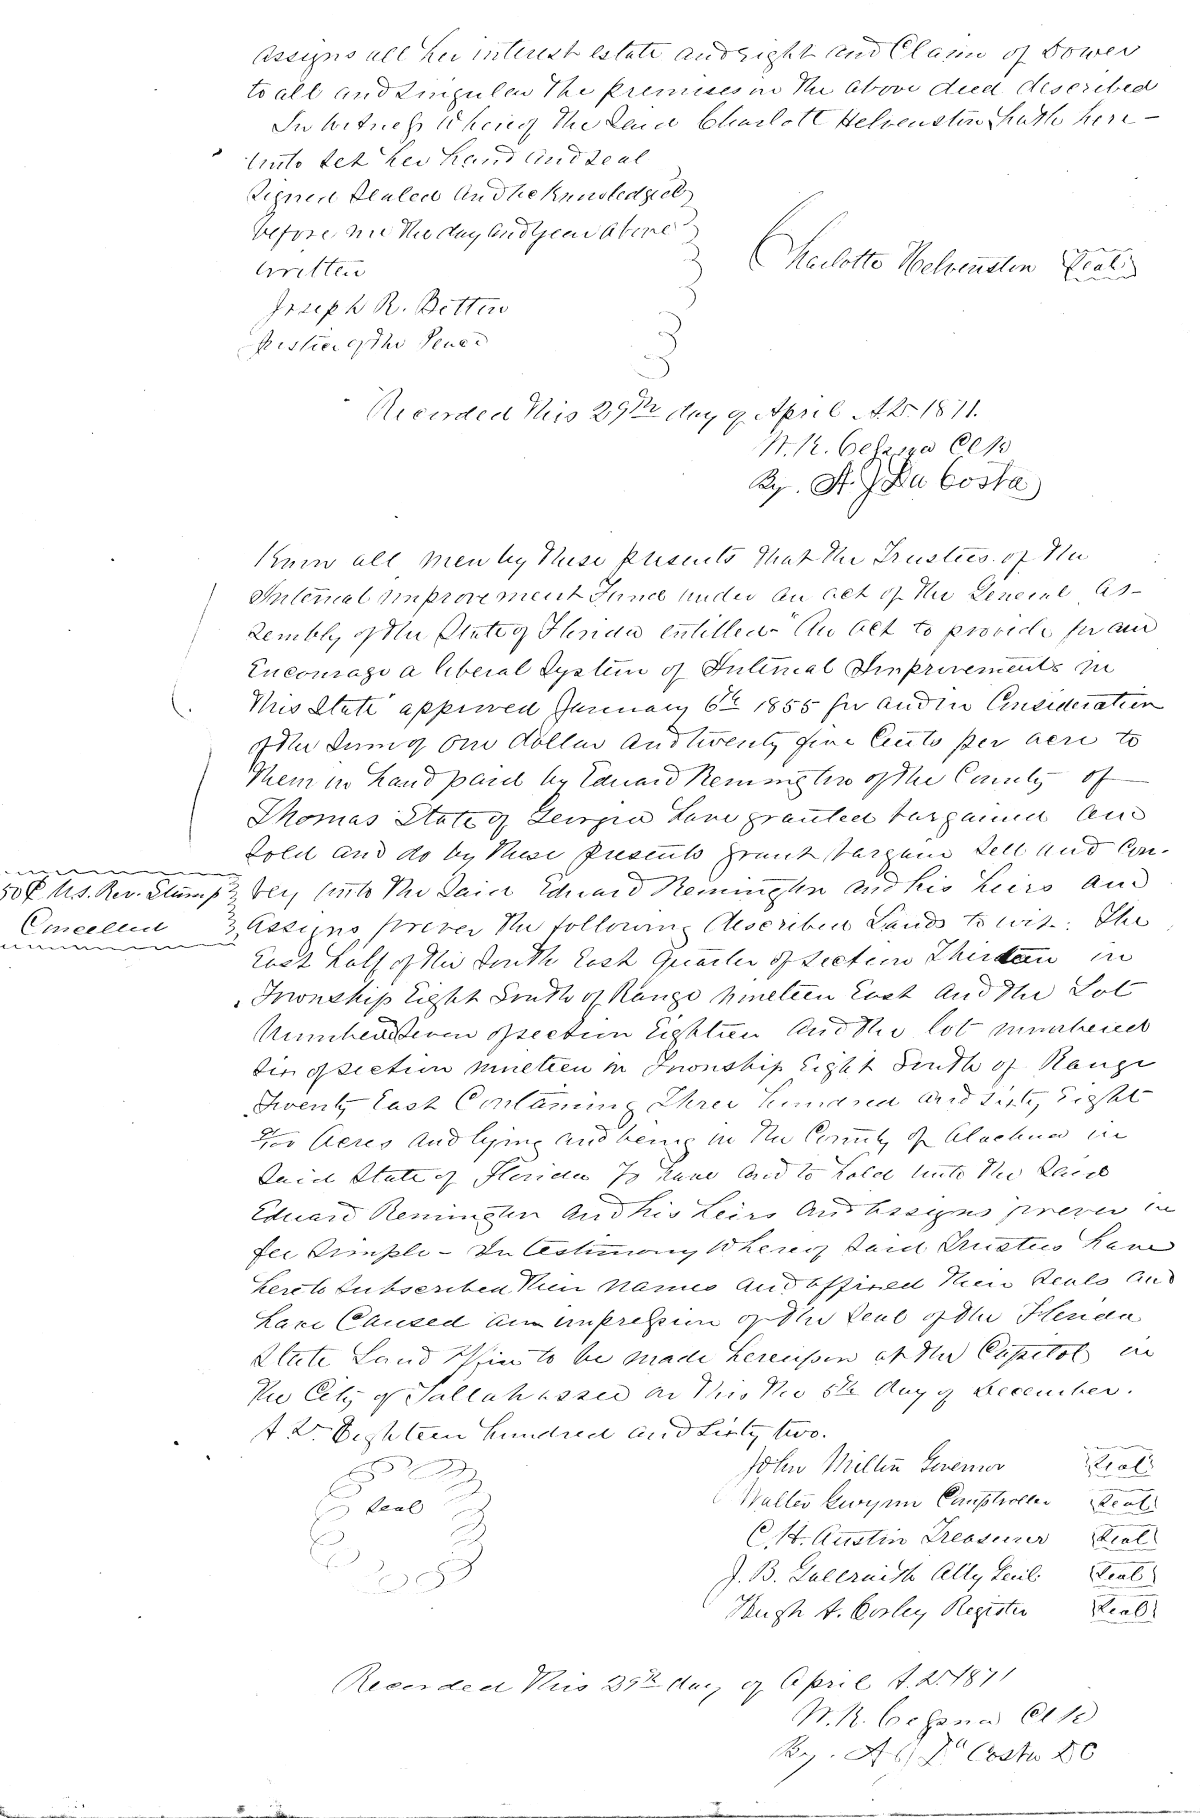 assigns all her interest estate and right and Claim of Dower
to all and singular the premises in the above deed described
In witness whereof the said Charlott Helvenston hath here-
unto set her hand and seal
Signed sealed and acknowledged
before me the day and year above
written
Charlotte Helvenston Seal
Joseph R. Betten
Justice of the Peace
Recorded this 29th day of April A.D. 1871.
W. K. Cessna Clk
By. A. J Da Costa
Know all men by these presents that the Trustees of the
Internal improvement Fund under an act of the General As-
sembly of the State of Florida entitled "An act to provide for and
Encourage a liberal System of Internal Improvements in
this State" approved January 6th 1855 for and in Consideration
of the Sum of One dollar and twenty five Cents per acre to
them in hand paid by Edward Remington of the County of
Thomas State of Georgia have granted bargained and
sold and do by these presents grant bargain sell and con-
50¢ U.S. Rev. Stamp
Cancelled
vey unto the said Edward Remington and his heirs and
assigns forever the following described Lands to wit: The
East half of the South East quarter of section Thirteen in
Township Eight South of Range nineteen East and the Lot
Numbered Seven of section Eighteen and the lot numbered
Six of section nineteen in Township Eight South of Range
Twenty East Containing Three hundred and Sixty Eight
Acres and lying and being in the County of Alachua in
said State of Florida To have and to hold unto the said
Edward Remington and his heirs and assigns forever in
fee Simple - In testimony Whereof said Trustees have
hereto subscribed their names and affixed their seals and
have Caused an impression of the seal of the Florida
State Land Office to be made hereupon at the Capitol in
the City of Tallahassee on this the 5th day of December.
A.D. Eighteen hundred and Sixty two.
seal
John Milton Governor Seal
Walter Gwynn Comptroller Seal
C. H. Austin Treasurer Seal
J. B. Galbraith Atty Genl. Seal
Hugh A. Corley Register Seal
Recorded this 29th day of April A.D. 1871
W. K. Cessna Clk
By. A J Da Costa DC